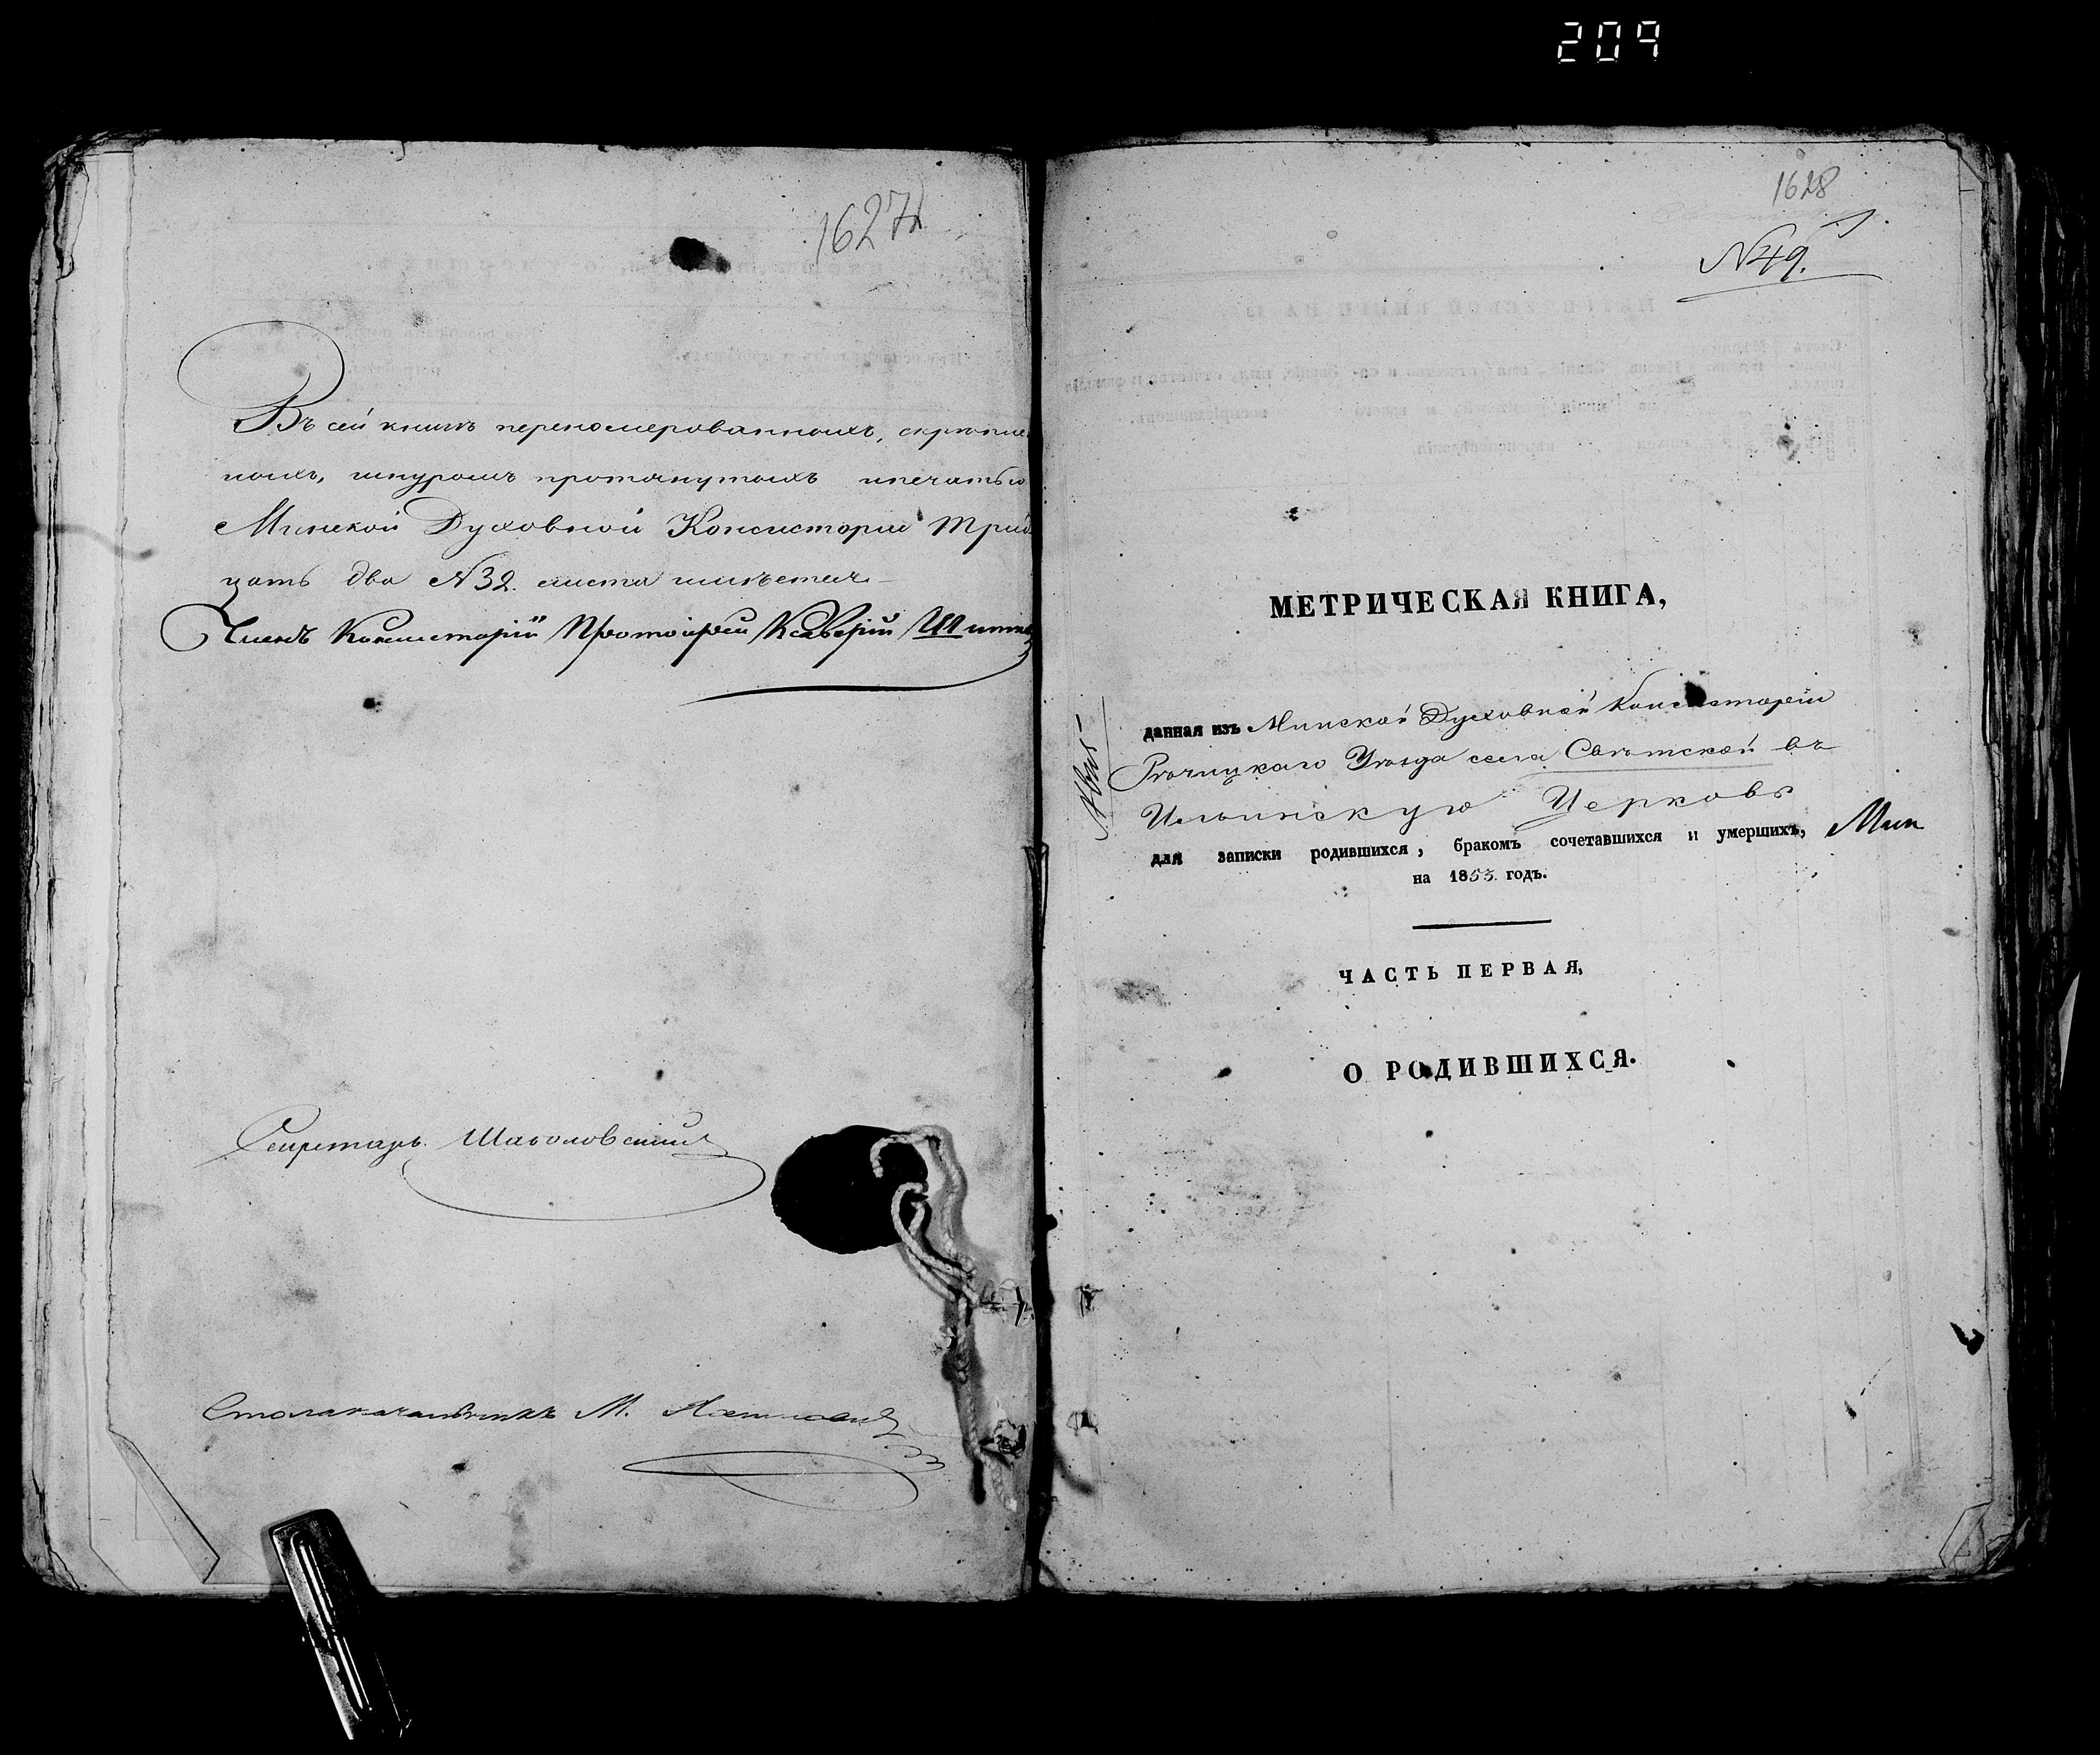 209
1627
Въ сей книгѣ переномерованныхъ, скрѣплен
ныхъ, шнуромъ протянутыхъ и печатью
Минской Духовной Консисторіи Трид
цать два N 32. листа имѣется.
Членъ Консисторіи Протоіерей Ксаверій
Секретарь
Столоначальникъ М.
1628
N 49.
МЕТРИЧЕСКАЯ КНИГА,
данная изъ Минской Духовной Консисторіи
Рѣчицкаго Уѣзда села Святской въ
Ильинскую Церковь
для записки родившихся, бракомъ сочетавшихся и умершихъ,
на 1853. годъ.
ЧАСТЬ ПЕРВАЯ,
О РОДИВШИХСЯ.